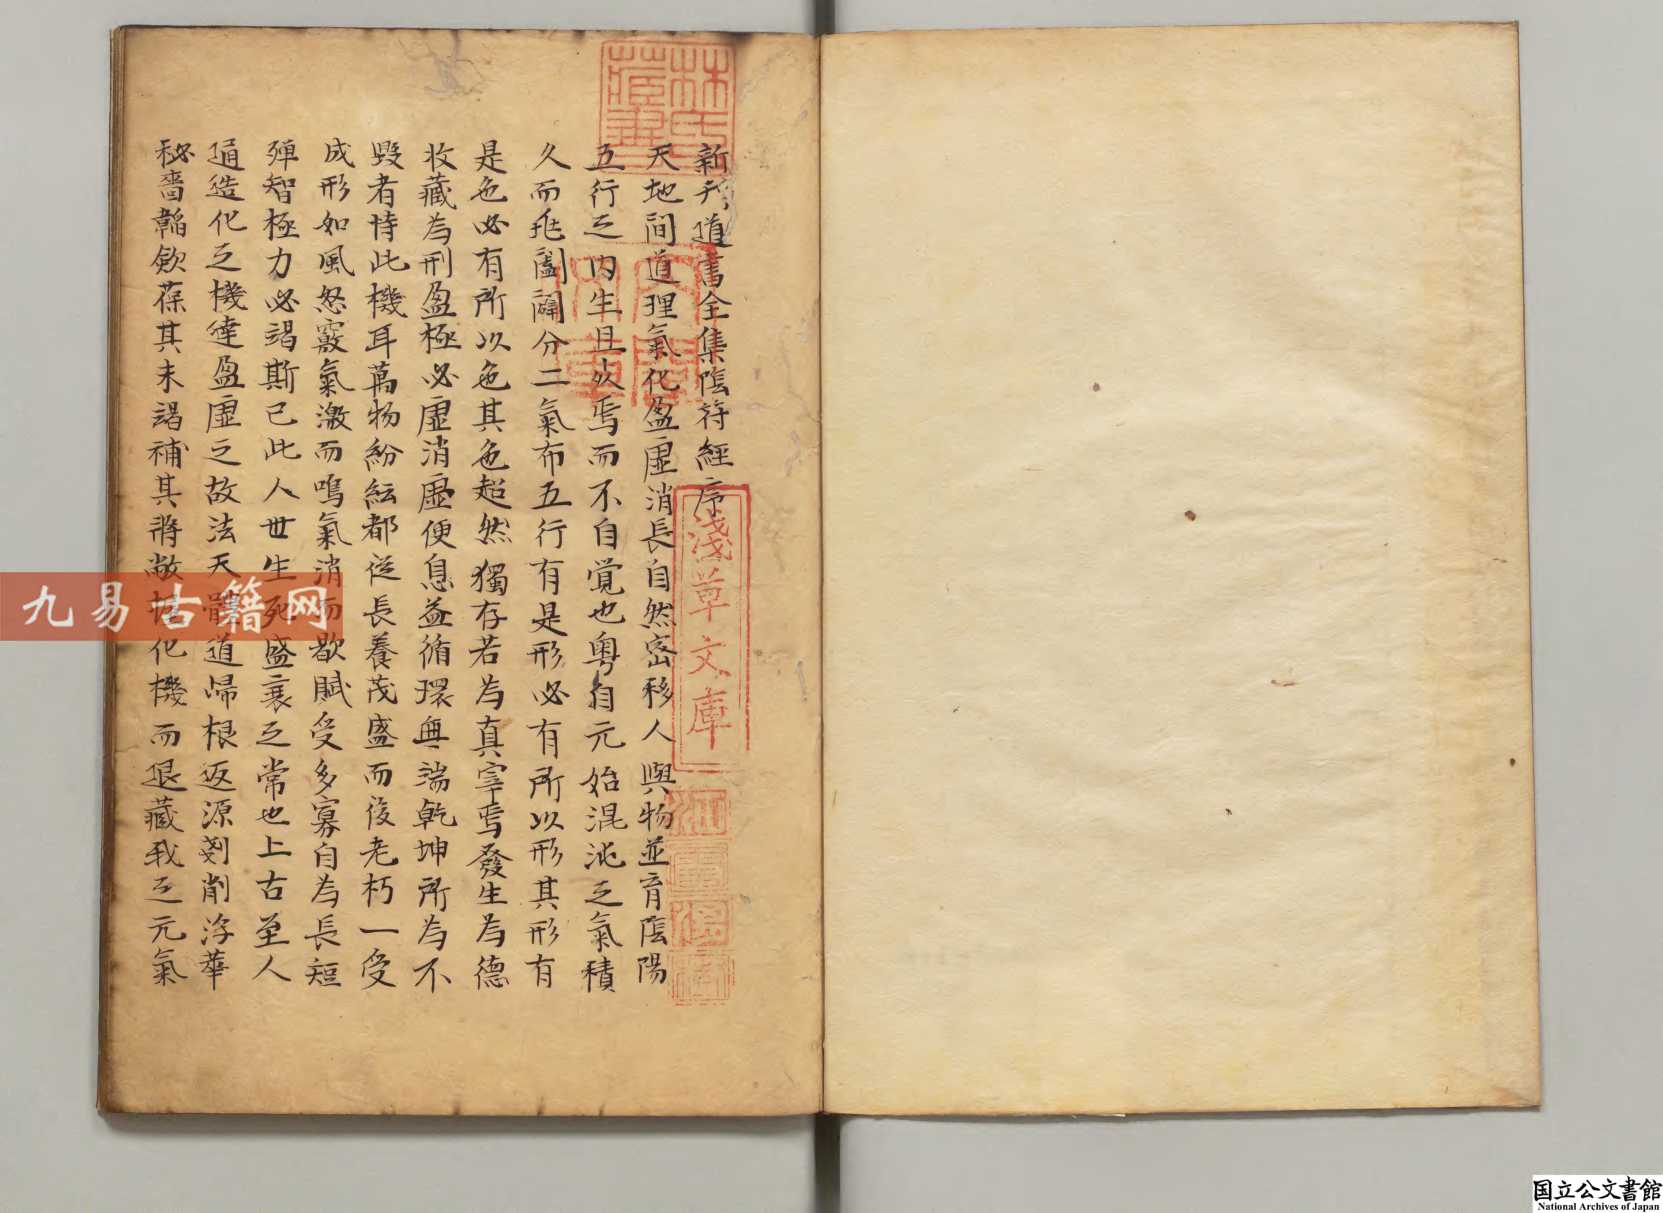 新刋道書全集陰符經序
天地間道理氣化盈虛消長自然密移人與物並育陰陽
五行之內生且死焉而不自覺也粵自元始混沌之氣積
久而兆闔闢分二氣布五行有是形必有所以形其形有
是色必有所以色其色超然獨存若為真宰焉發生為德
收藏為刑盈極必虛消虛便息益循環無端乾坤所為不
毀者恃此機耳萬物紛紜都從長養茂盛而後老朽一受
成形如風怒竅氣激而鳴氣消而歇賦受多寡自為長短
殫智極力必竭斯已此人世生死盛衰之常也上古至人
通造化之機達盈虛之故法天體道歸根返源剗削浮華
秘嗇韜斂葆其未竭補其將敝 化機而退藏我之元氣
林氏藏書
淺草文庫
九易古籍网
国立公文書館
National Archives of Japan